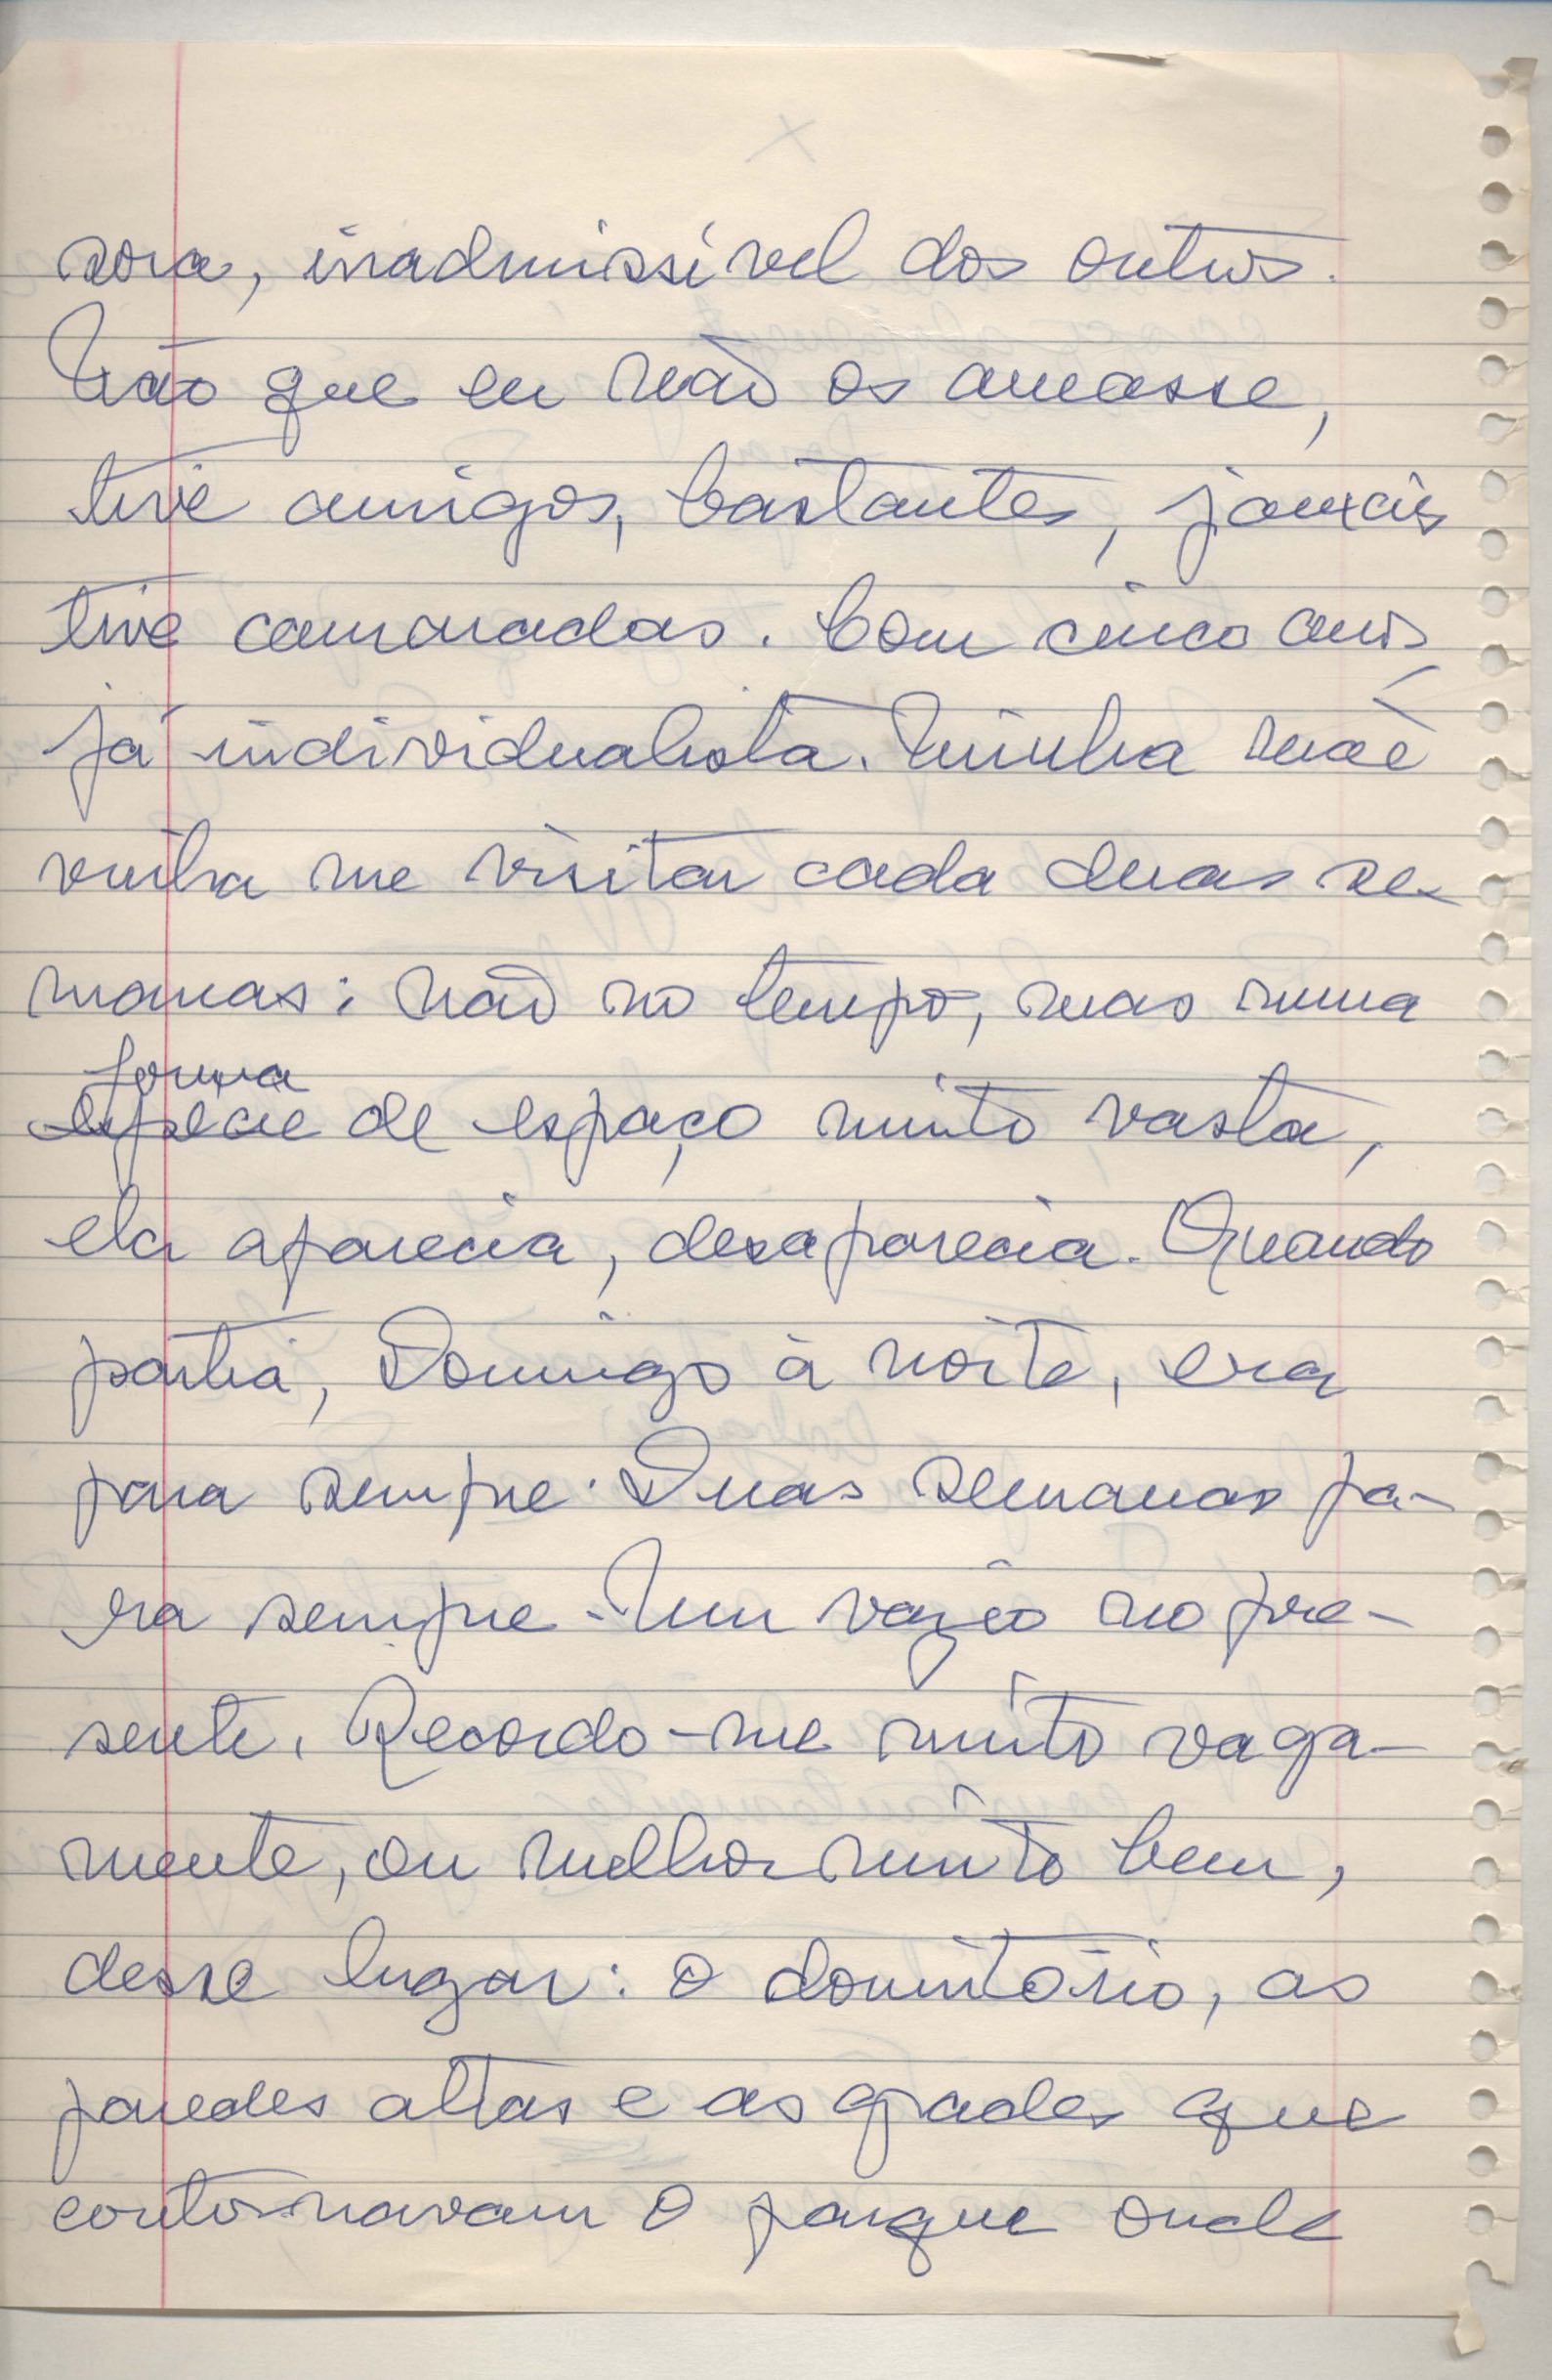 sora, inadmissível dos outros.
Não que eu não os amasse,
tive amigos, bastantes, jamais
tive camaradas. Com cinco anos
já individualista. Minha mãe
vinha me visitar cada duas se-
manas: não no tempo, mas numa
forma
espécie de espaço muito vasta,
ela aparecia, desaparecia. Quando
partia, Domingo à noite, era
para sempre. Duas semanas pa-
ra sempre. Num vazio no pre-
sente. Recordo-me muito vaga-
mente, ou melhor muito bem,
desse lugar: o dormitório, as
paredes altas e as grades que
contornavam o parque onde